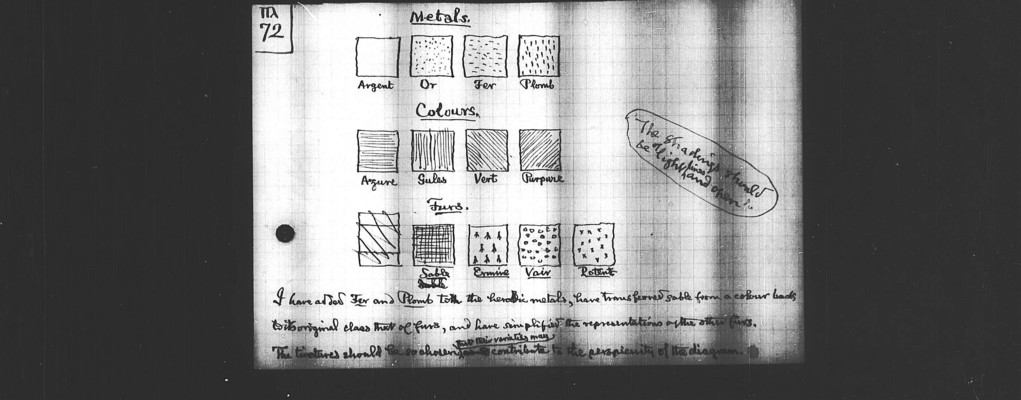 III
72
Metals.
Argent Or Fer Plomb
Colours.
Azure Gules Vert Purpure
Furs.
Sable Ermine Vair Potent
Sable
The shadings should
be light, and open
I have added Fer and Plomb to the heraldic metals, have transferred sable from a colour back
to its original class that of furs, and have simplified the representations of the other furs.
that their varieties may
The tinctures should be so chosen contribute to the perspicuity of the diagram.